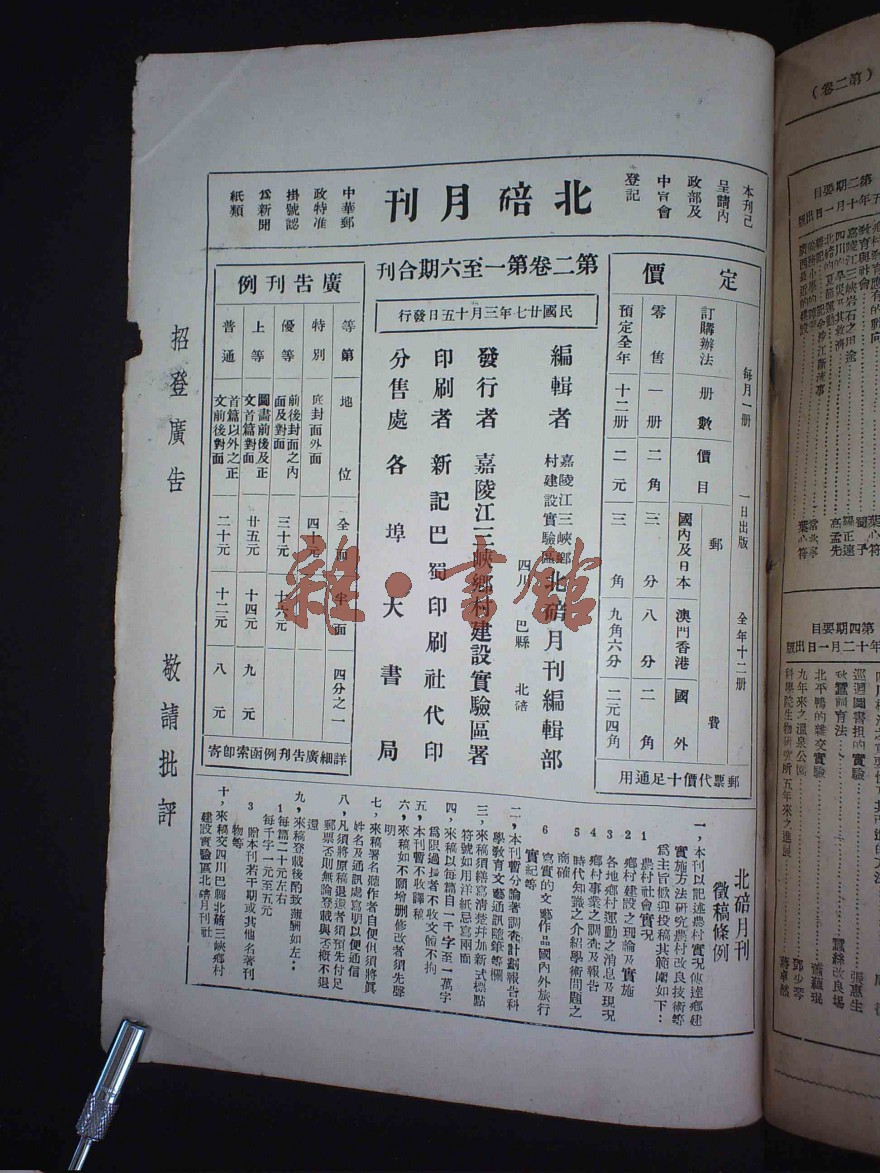 本刊已
呈請內
政部及
中宣會
登記
北碚月刊
中華郵
政特准
掛號認
為新聞
紙類
定價
每月一册 一日出版 全年十二册
訂購辦法 册數 價目 郵費
國內及日本 澳門香港 國外
零售 一册 二角 三分 八分 二角
預定全年 十二册 二元 三角 九角六分 二元四角
郵票代價十足通用
第二卷第一至六期合刊
民國廿七年三月十五日發行
編輯者 嘉陵江三峽鄉村建設實驗區北碚月刊編輯部
四川 巴縣 北碚
發行者 嘉陵江三峽鄉村建設實驗區署
印刷者 新記巴蜀印刷社代印
分售處 各埠大書局
廣告刊例
等第 地位 全面 半面 四分之一
特別 底封面外面 四十元
優等 前後封面之內面及對面 三十元 十六元
上等 圖書前後及正文首篇對面 廿五元 十四元 九元
普通 首篇以外之正文前後對面 二十元 十二元 八元
詳細廣告刊例函索即寄
招登廣告 敬請批評
北碚月刊
徵稿條例
一，本刊以記述農村實況傳達鄉建
實施方法研究農村改良技術等
為主旨歡迎投稿其範圍如下：
1 農村社會實況
2 鄉村建設之理論及實施
3 各地鄉村運動之消息及現況
4 鄉村事業之調查及報告
5 時代知識之介紹學術問題之
商確
6 寫實的文藝作品國內外旅行
實紀等
二，本刊暫分論著調查計劃報告科
學教育文藝通訊隨筆等欄
三，來稿須繕寫清楚並加新式標點
符號如用洋紙忌寫兩面
四，來稿以每篇自一千字至一萬字
為限過長者不收文體不拘
五，本刊暫不收譯稿
六，來稿如不願增删修改者須先聲
明
七，來稿署名聽作者自便但須將眞
姓名及通訊處寫明以便通信
八，凡須將原稿退還者須預先付足
郵票否則無論登載與否概不退
還
九，來稿登載後酌致薄酬如左：
1 每篇二十元左右
2 每千字一元至五元
3 贈本刊若干期或其他名著刊
物等
十，來稿交四川巴縣北碚三峽鄉村
建設實驗區北碚月刊社
雜·書館
（第二卷）
第二期要目
教育與社會
嘉陵江三峽岩石之用途
葉心符
高孟先
第四期要目
九年來之溫泉公園
鄧少琴
科學院生物研究所五年來之進展
北平鴨的雜交實驗
巡迴圖書担的實驗
張惠生
秋蠶飼育法
蠶絲改良場